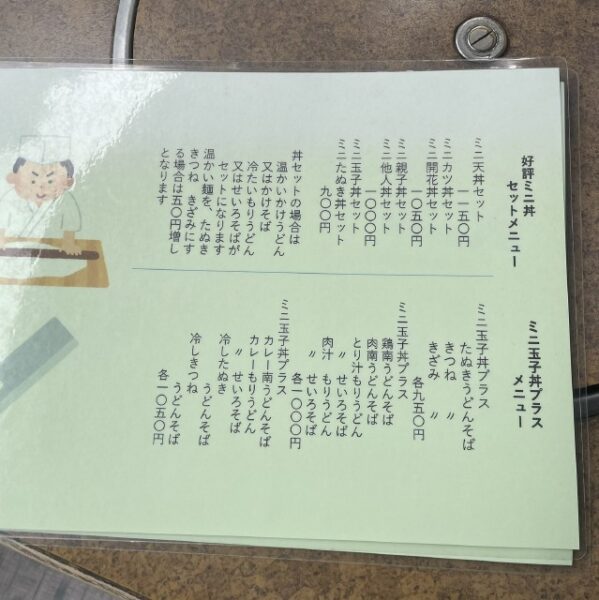 好評ミニ丼
セットメニュー
ミニ天丼セット
一一五〇円
ミニカツ丼セット
ミニ開花丼セット
一〇五〇円
ミニ親子丼セット
ミニ他人丼セット
一〇〇〇円
ミニ玉子丼セット
ミニたぬき丼セット
九〇〇円
丼セットの場合は
温かいかけうどん
又はかけそば
冷たいもりうどん
又はせいろそばが
セットになります
温かい麺を、たぬき
きつね きざみにす
る場合は五〇円増し
となります
ミニ玉子丼プラス
メニュー
ミニ玉子丼プラス
たぬきうどんそば
きつね 〃
きざみ 〃
各九五〇円
ミニ玉子丼プラス
鶏南うどんそば
肉南うどんそば
とり汁もりうどん
〃 せいろそば
肉汁 もりうどん
〃 せいろそば
各一〇〇〇円
ミニ玉子丼プラス
カレー南うどんそば
カレーもりうどん
〃 せいろそば
冷したぬき
うどんそば
冷しきつね
うどんそば
各一〇五〇円